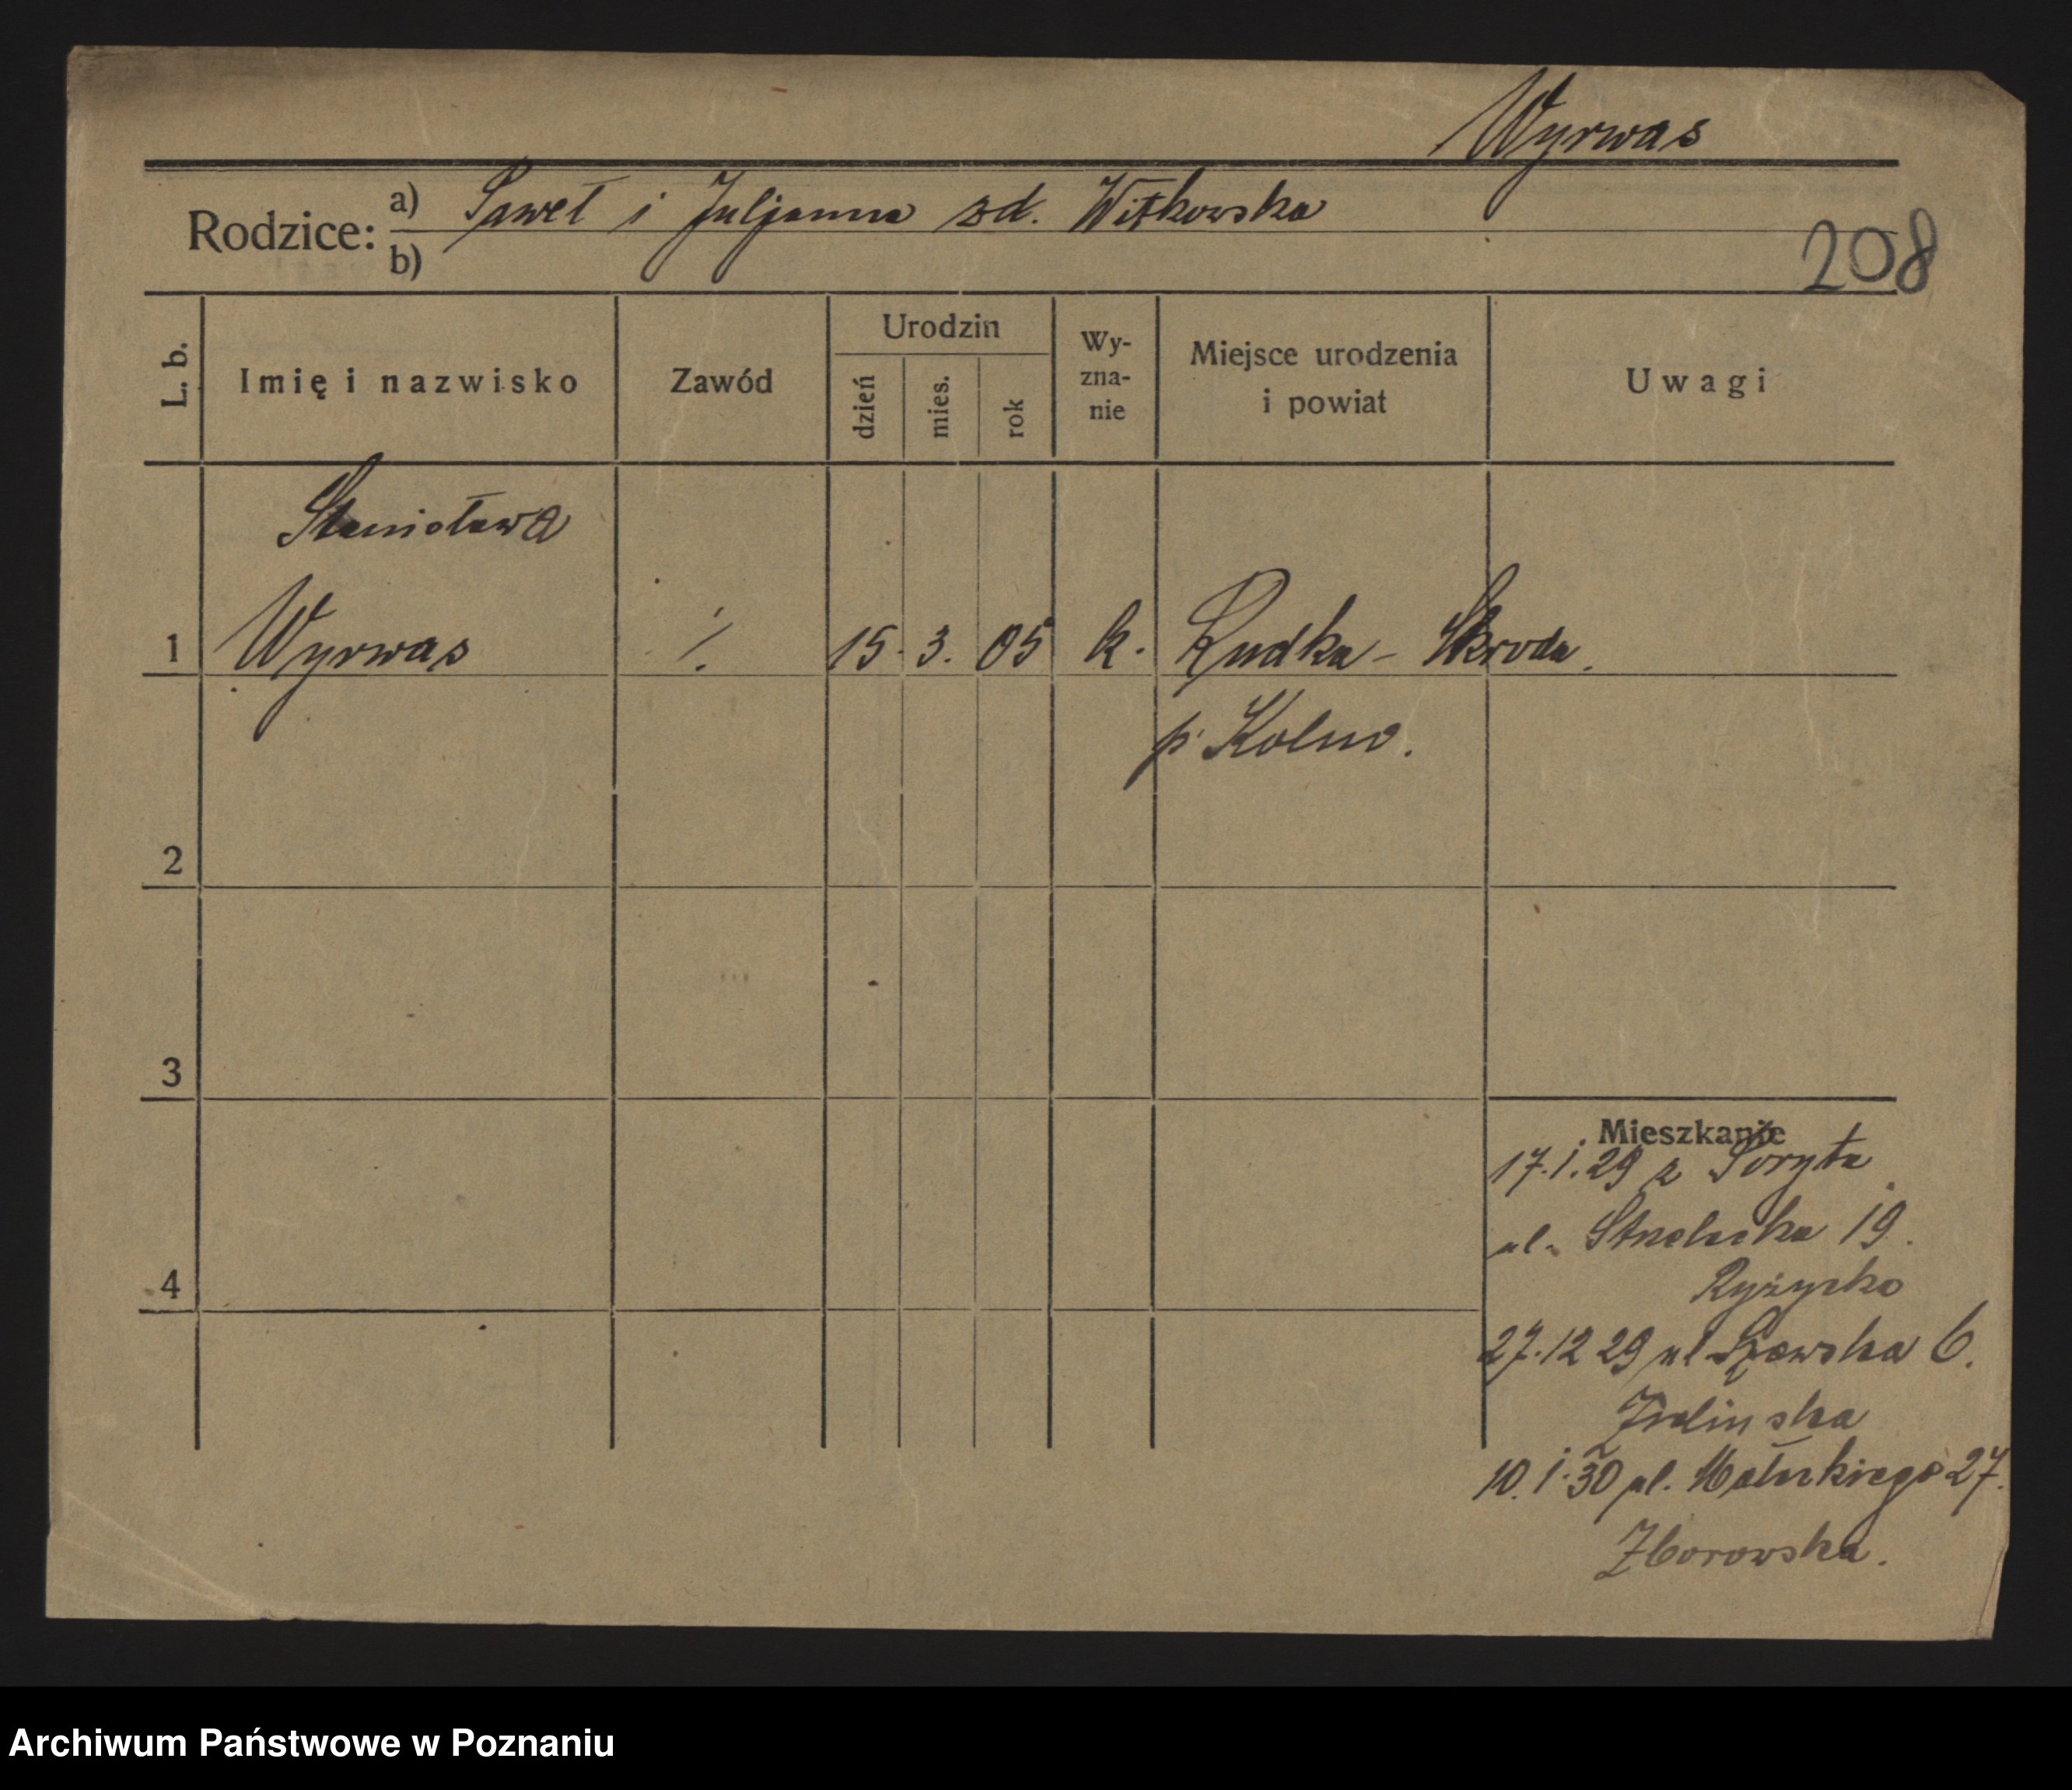 Wyrwas
Rodzice: a) Paweł i Juljanna zd. Witkowska
b)
208
L. b.
Imię i nazwisko
Zawód
Urodzin
dzień
mies.
rok
Wy-
zna-
nie
Miejsce urodzenia
i powiat
Uwagi
Stanisława
1 Wyrwas ./. 15. 3. 05 k. Rudka - Skroda.
p. Kolno.
2
3
4
Mieszkanie
17.1.29 z Poryta
ul. Strzelecka 19.
Ryżycko
27.12 29 ul Szewska 6.
Zielinska
10.1.30 ul. Małeckiego 27.
Zborowska.
Archiwum Państwowe w Poznaniu